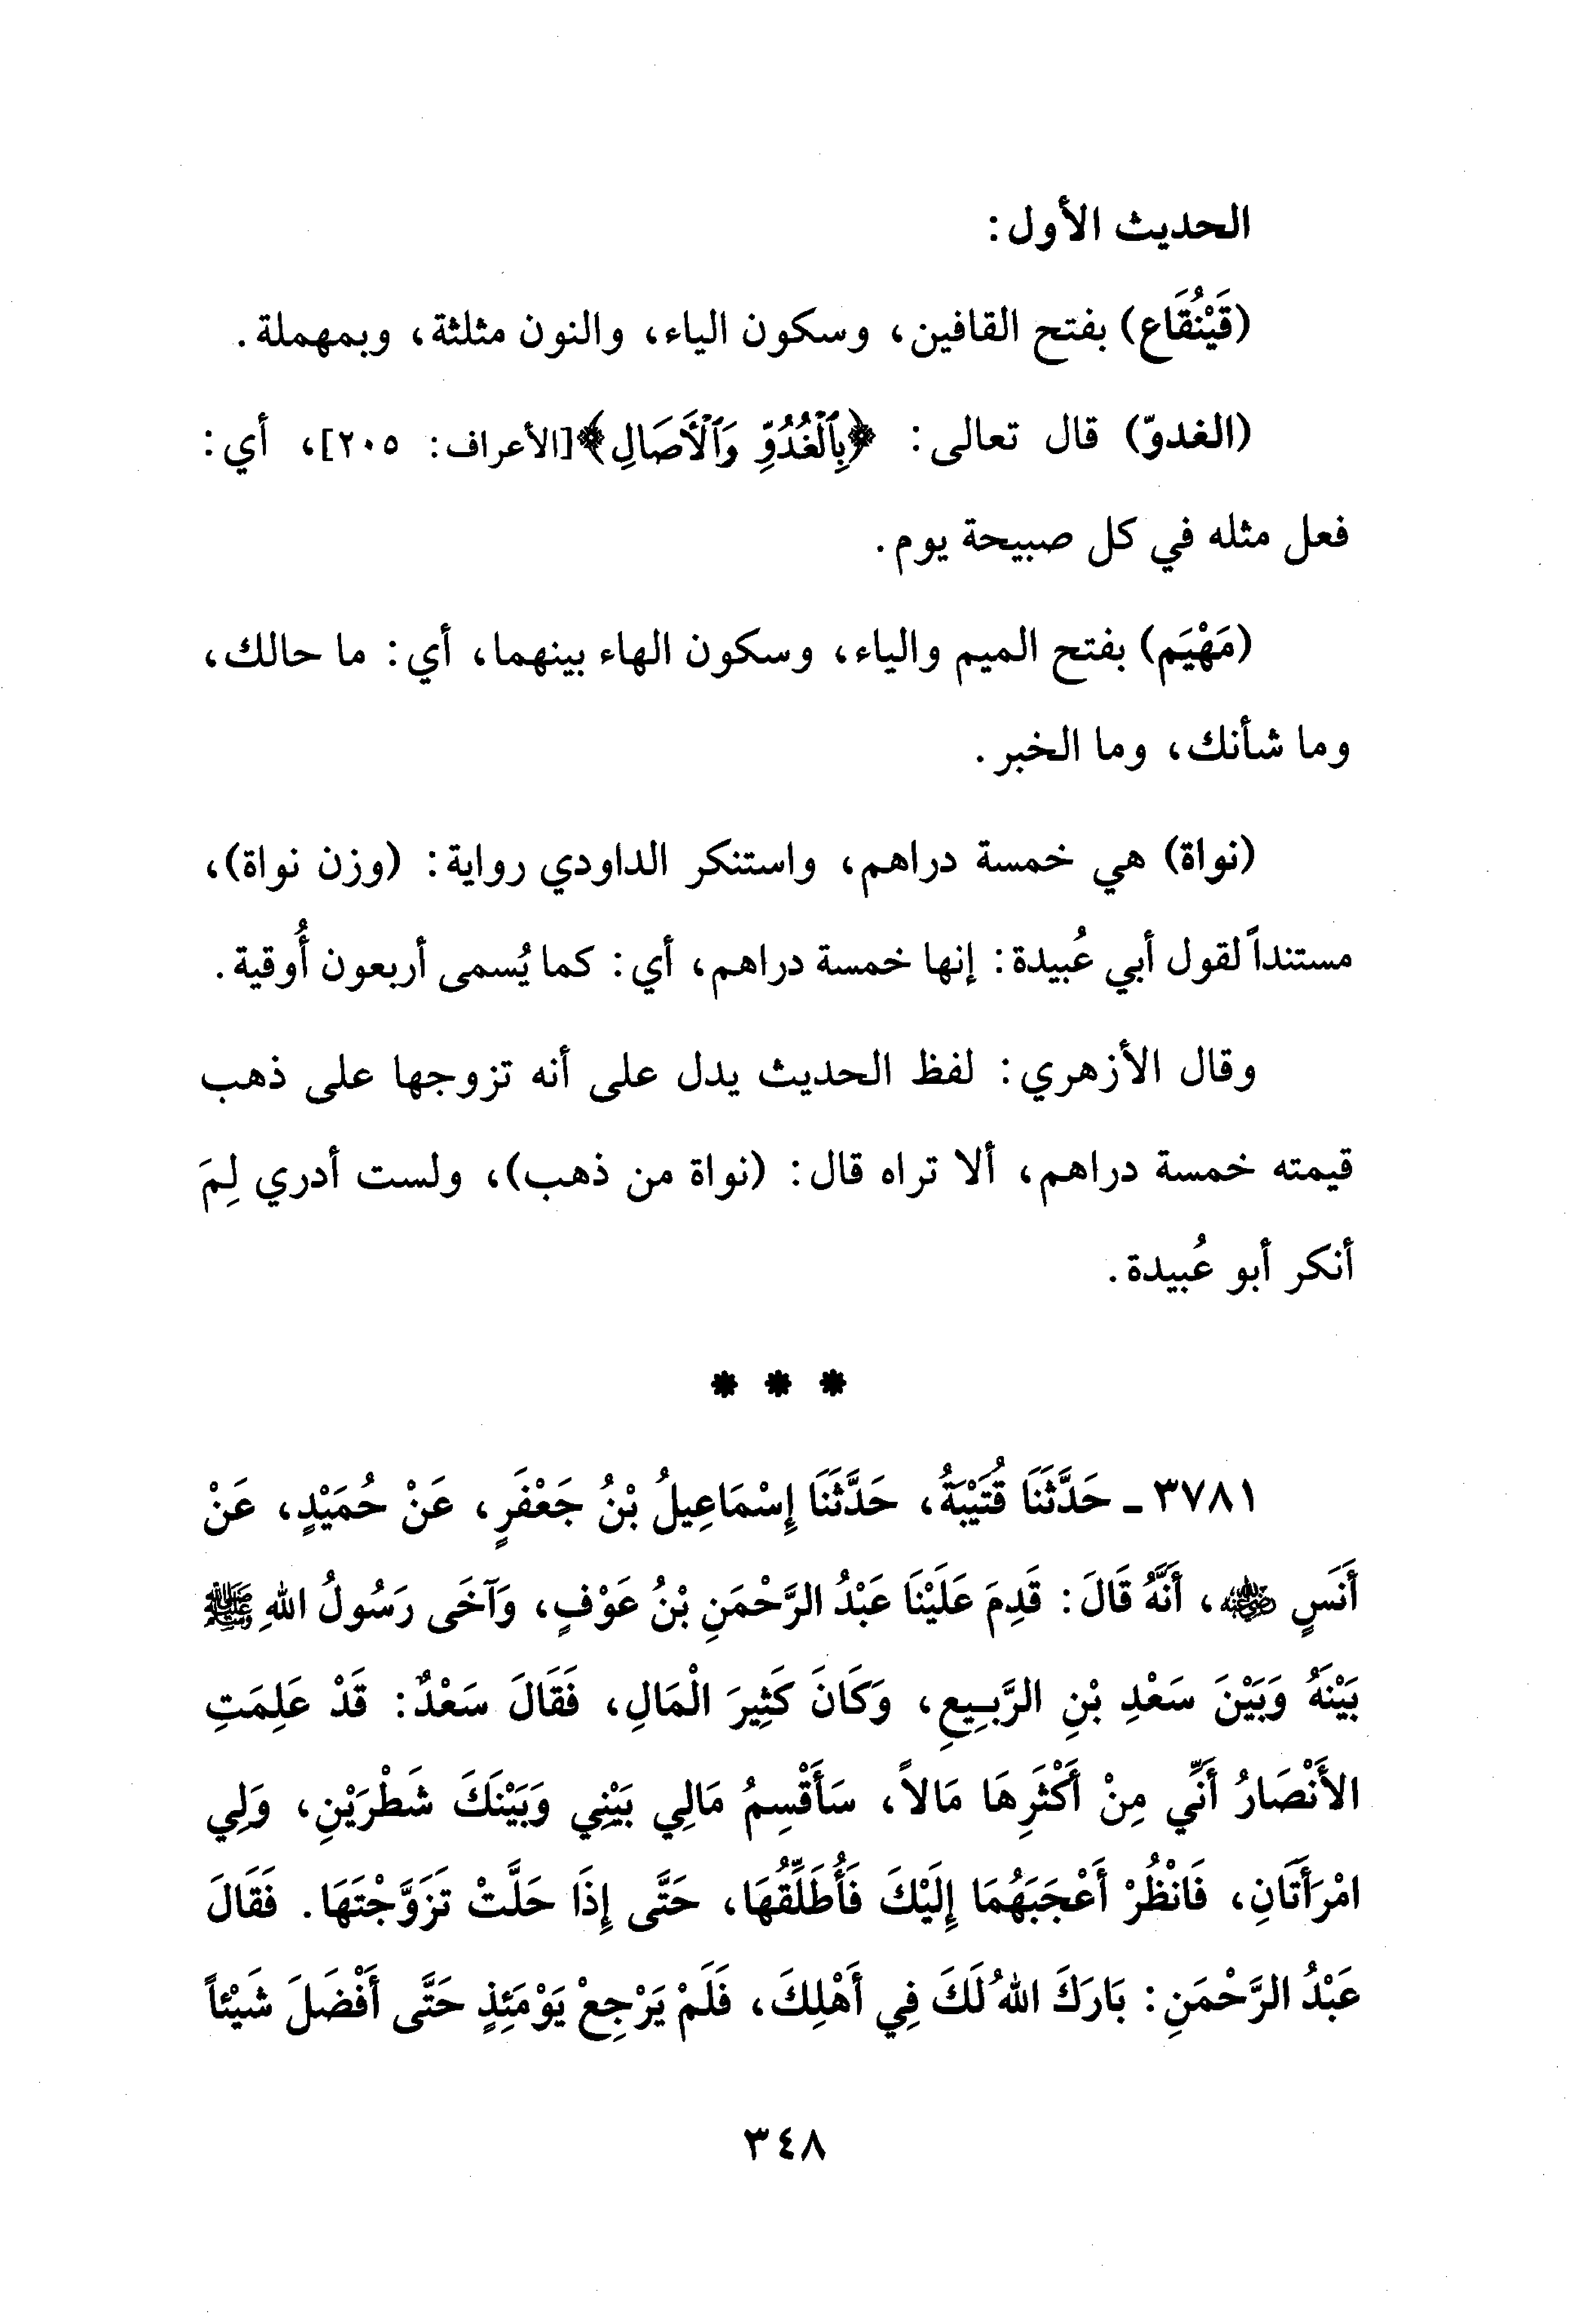 الحديث الأول:
(قَيْنُقَاع) بفتح القافين، وسكون الياء، والنون مثلثة، وبمهملة.
(الغدوّ) قال تعالى: ﴿بِٱلْغُدُوِّ وَٱلْأَصَالِ﴾[الأعراف: ٢٠٥]، أي:
فعل مثله في كل صبيحة يوم.
(مَهْيَم) بفتح الميم والياء، وسكون الهاء بينهما، أي: ما حالك،
وما شأنك، وما الخبر.
(نواة) هي خمسة دراهم، واستنكر الداودي رواية: (وزن نواة)،
مستنداً لقول أبي عُبيدة: إنها خمسة دراهم، أي: كما يُسمى أربعون أُوقية.
وقال الأزهري: لفظ الحديث يدل على أنه تزوجها على ذهب
قيمته خمسة دراهم، ألا تراه قال: (نواة من ذهب)، ولست أدري لِمَ
أنكر أبو عُبيدة.
* * *
٣٧٨١ ـ حَدَّثَنَا قُتَيْبَةُ، حَدَّثَنَا إِسْمَاعِيلُ بْنُ جَعْفَرٍ، عَنْ حُمَيْدٍ، عَنْ
أَنَسٍ رضي الله عنه، أَنَّهُ قَالَ: قَدِمَ عَلَيْنَا عَبْدُ الرَّحْمَنِ بْنُ عَوْفٍ، وَآخَى رَسُولُ اللهِ ﷺ
بَيْنَهُ وَبَيْنَ سَعْدِ بْنِ الرَّبِيعِ، وَكَانَ كَثِيرَ الْمَالِ، فَقَالَ سَعْدٌ: قَدْ عَلِمَتِ
الأَنْصَارُ أَنِّي مِنْ أَكْثَرِهَا مَالاً، سَأَقْسِمُ مَالِي بَيْنِي وَبَيْنَكَ شَطْرَيْنِ، وَلِي
امْرَأَتَانِ، فَانْظُرْ أَعْجَبَهُمَا إِلَيْكَ فَأُطَلِّقُهَا، حَتَّى إِذَا حَلَّتْ تَزَوَّجْتَهَا. فَقَالَ
عَبْدُ الرَّحْمَنِ: بَارَكَ اللهُ لَكَ فِي أَهْلِكَ، فَلَمْ يَرْجِعْ يَوْمَئِذٍ حَتَّى أَفْضَلَ شَيْئاً
٣٤٨